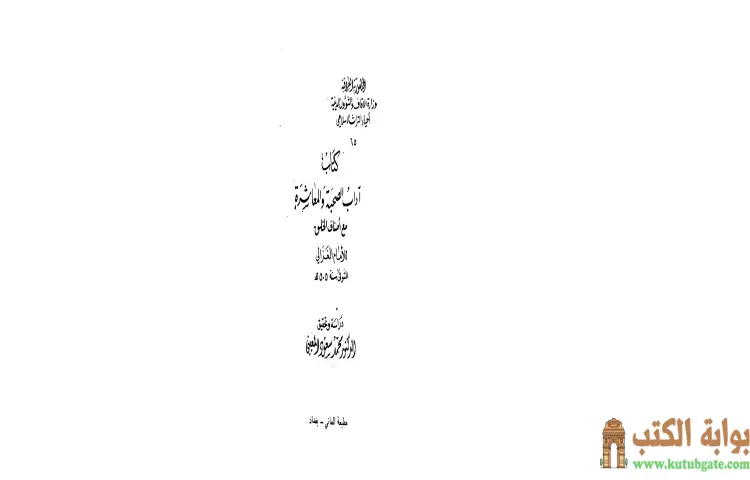 الجمهورية العراقية
وزارة الاوقاف والشؤون الدينية
احياء التراث الاسلامي
٦٥
كتاب
آداب الصحبة والمعاشرة
مع أصناف الخلق
للأمام الغزالي
المتوفى سنة ٥٠٥ هـ
دراسة وتحقيق
الدكتور محمد سعود المعيني
مطبعة العاني - بغداد
بوابة الكتب
www.kutubgate.com